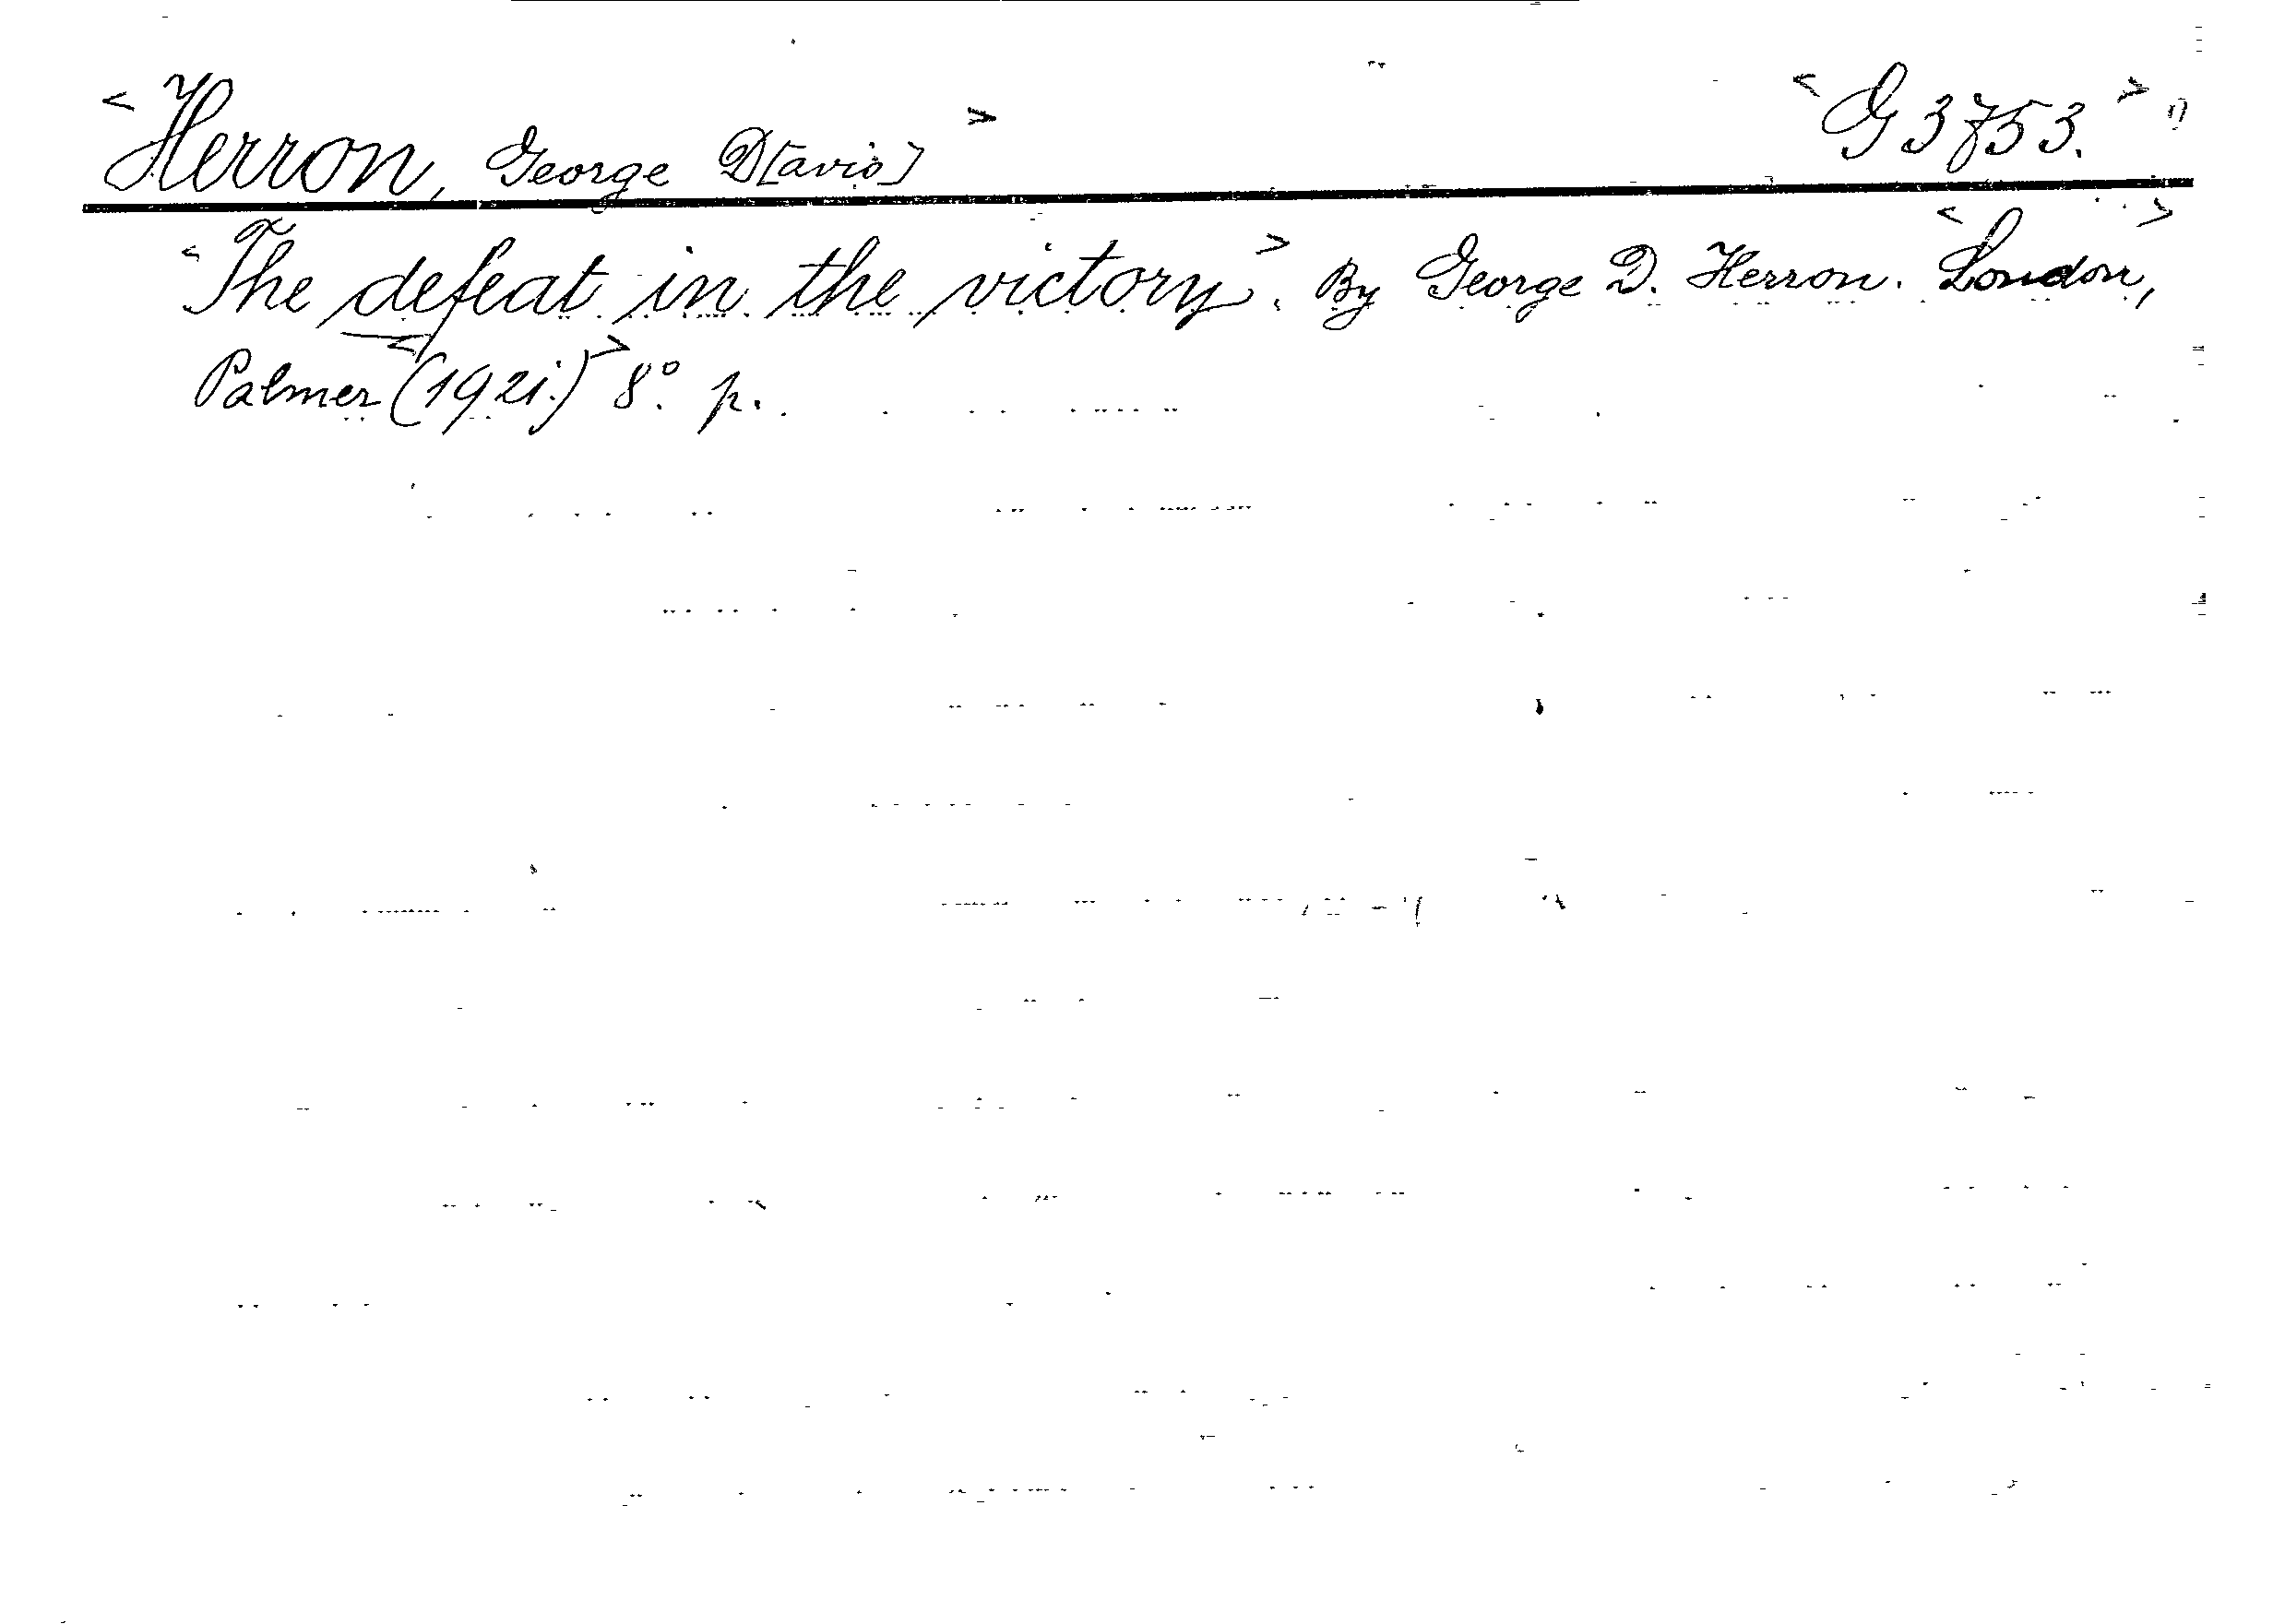 <Herron, George D[avis]> <G 3753.>
<The defeat in the victory>. By George D. Herron. <London,>
Palmer <(1921.)> 8° p.